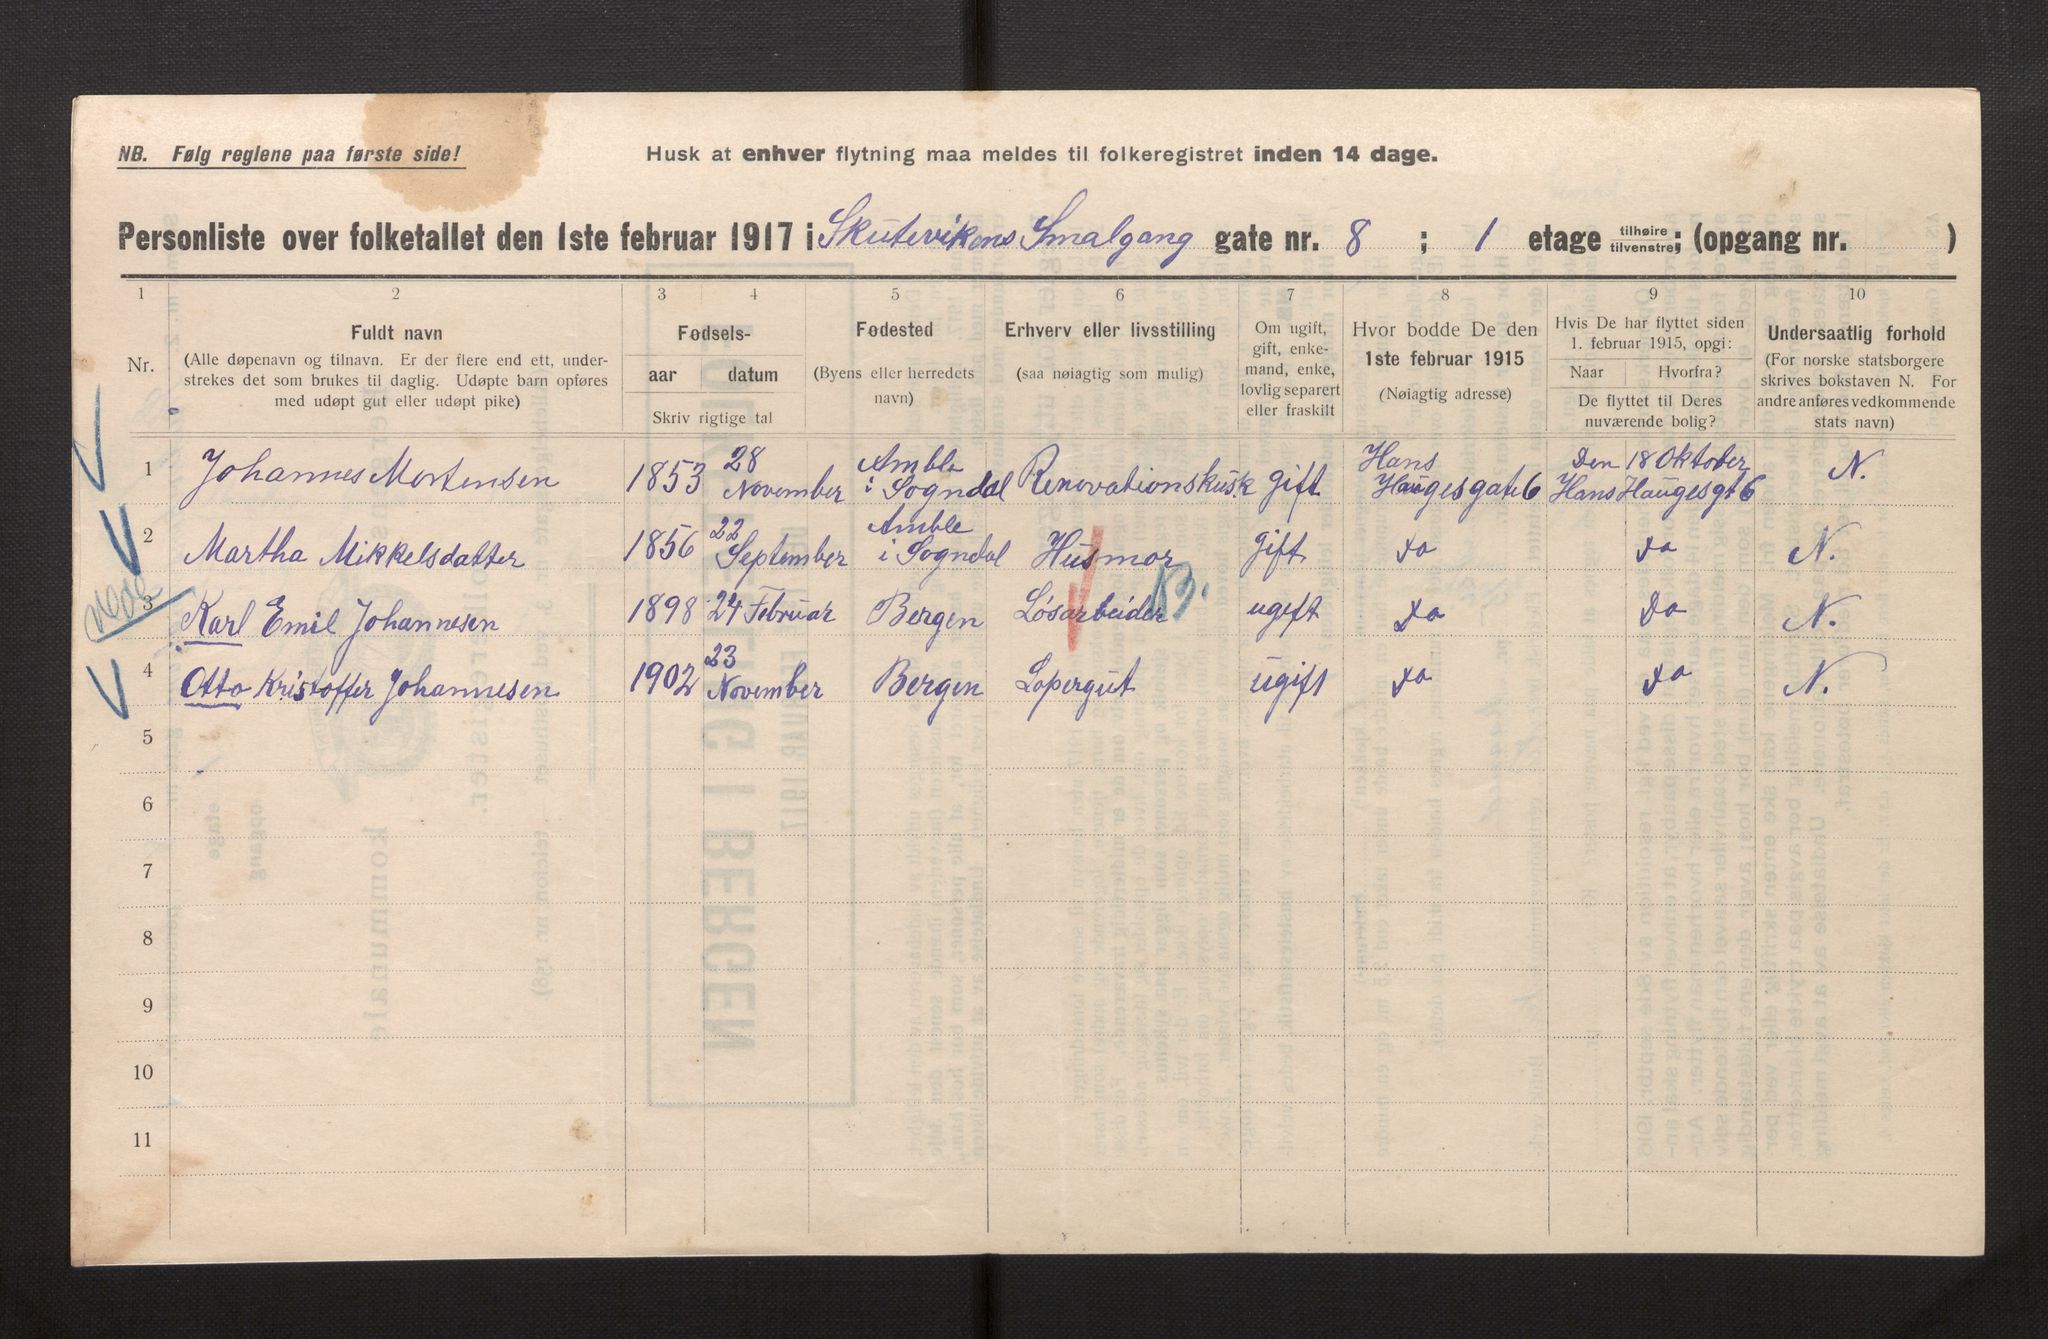 NB. Følg reglene paa første side!
Husk at enhver flytning maa meldes til folkeregistret inden 14 dage.
Personliste over folketallet den 1ste februar 1917 i Skutevikens Smalgang gate nr. 8 ; 1 etage tilhøire tilvenstre; (opgang nr. )
1 2 3 4 5 6 7 8 9 10
Nr.
Fuldt navn
(Alle døpenavn og tilnavn. Er der flere end ett, under-
strekes det som brukes til daglig. Udøpte barn opføres
med udøpt gut eller udøpt pike)
Fødsels-
aar datum
Skriv rigtige tal
Fødested
(Byens eller herredets
navn)
Erhverv eller livsstilling
(saa nøiagtig som mulig)
Om ugift,
gift, enke-
mand, enke,
lovlig separert
eller fraskilt
Hvor bodde De den
1ste februar 1915
(Nøiagtig adresse)
Hvis De har flyttet siden
1. februar 1915, opgi:
Naar Hvorfra?
De flyttet til Deres
nuværende bolig?
Undersaatlig forhold
(For norske statsborgere
skrives bokstaven N. For
andre anføres vedkommende
stats navn)
1 Johannes Mortensen 1853 28 November Amble i Sogndal Renovationskusk gift Hans Haugesgate 6 Den 18 Oktober Hans Haugesgt 6 N.
2 Martha Mikkelsdatter 1856 22 September Amble i Sogndal Husmor gift Do Do N.
3 Karl Emil Johannesen 1898 24 Februar Bergen Løsarbeider ugift Do Do N.
4 Otto Kristoffer Johannesen 1902 23 November Bergen Lopergut ugift Do Do N.
5
6
7
8
9
10
11